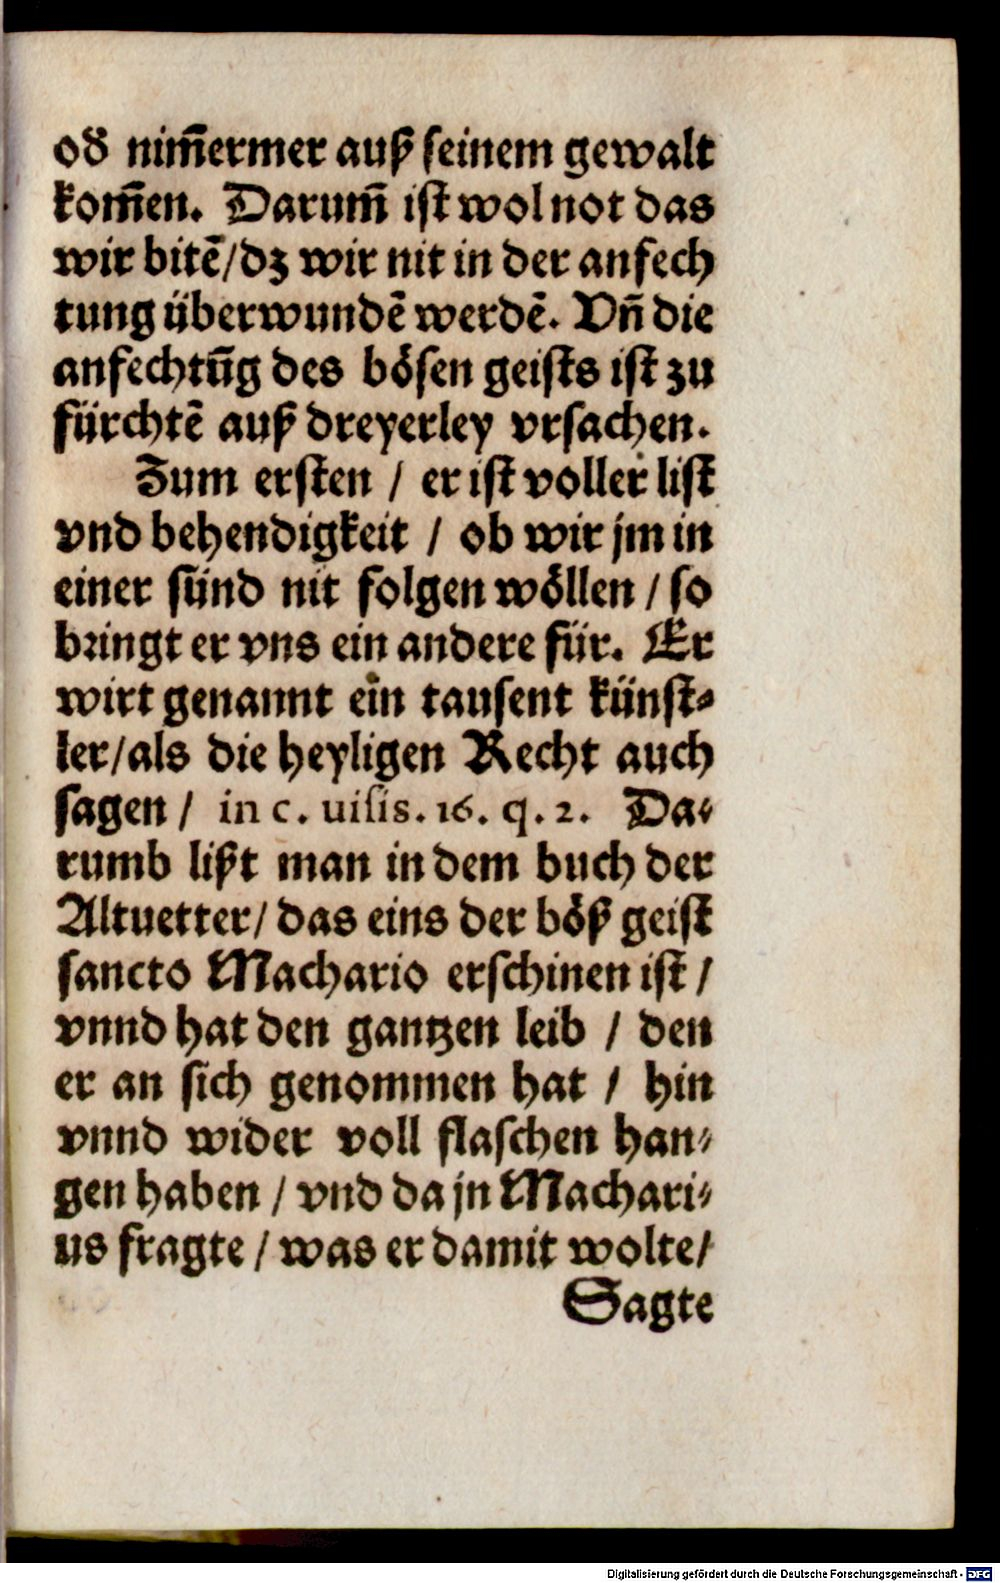 od᷑ nim̄ermer auß seinem gewalt
kom̄en. Darum̄ ist wol not das
wir bitē/dz wir nit in der anfech
tung überwundē werdē. Vn̄ die
anfechtūg des bösen geists ist zu
fürchtē auß dreyerley vrsachen.
Zum ersten / er ist voller list
vnd behendigkeit / ob wir jm in
einer sünd nit folgen wöllen / so
bringt er vns ein andere für. Er
wirt genannt ein tausent künst-
ler/als die heyligen Recht auch
sagen / in c. uisis. 16. q. 2. Da-
rumb lißt man in dem buch der
Altuetter/ das eins der böß geist
sancto Machario erschinen ist /
vnnd hat den gantzen leib / den
er an sich genommen hat / hin
vnnd wider voll flaschen han-
gen haben / vnd da jn Machari-
us fragte / was er damit wolte/
Sagte
Digitalisierung gefördert durch die Deutsche Forschungsgemeinschaft - DFG